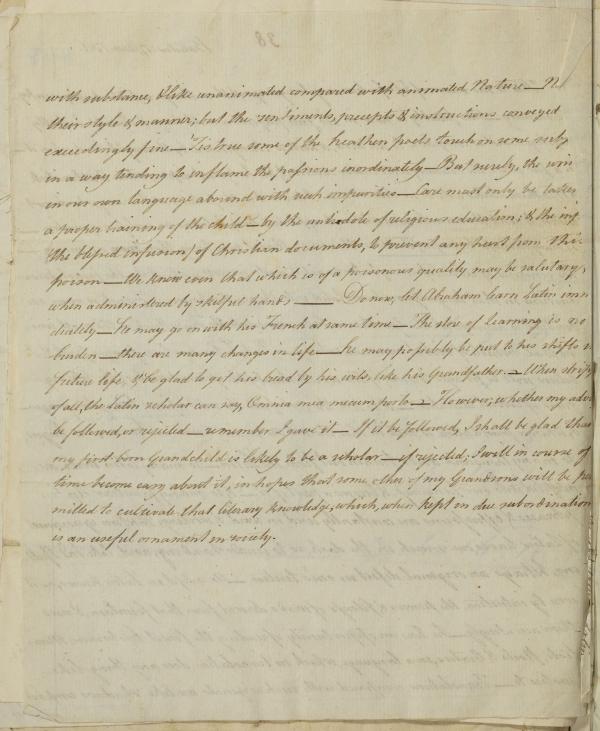 38
with substance, & like unanimated compared with animated Nature — N
their style & manner; but the sentiments, precepts & instructions conveyed
exceedingly fine — 'Tis true some of the heathen poets touch on some subj
in a way tending to inflame the passions inordinately — But surely, the
in our own language abound with such impurities — Care must only be taken
a proper training of the child — by the antidote of religious education; & the inf
(the blessed infusion) of Christian documents, to prevent any hurt from this
poison — We know even that which is of a poisonous quality may be salutary,
when administered by skilful hands —— Do now, let Abraham learn Latin imm
diately — he may go on with his French at same time — The store of learning is no
burden — there are many changes in life — he may possibly be put to his shifts
future life, & be glad to get his bread by his wits, like his Grandfather — When stript
of all, the Latin scholar can say, Omnia mea mecum porto — However, whether my advi
be followed, or rejected — remember I gave it — If it be followed, I shall be glad that
my first-born Grandchild is likely to be a scholar — if rejected; I will in course of
time become easy about it, in hopes that some other of my Grandsons will be per
mitted to cultivate that literary knowledge, which, when kept in due subordination
is an useful ornament in society.